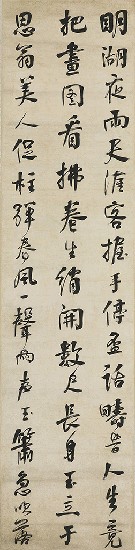 明湖夜雨天涯客握手停盃話疇昔人生竟
把畫圖看拂卷生綃開數尺長身玉立于
思翁美人促柱彈春風一聲兩聲玉簫急吹落